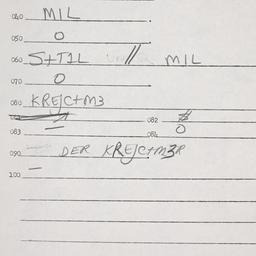 040 MIL
050 O
060 S+TIL // MIL
070 O
080 KREJC+M3
082 $
083 — 084 O
090 DER KREJC+M3R
100 —